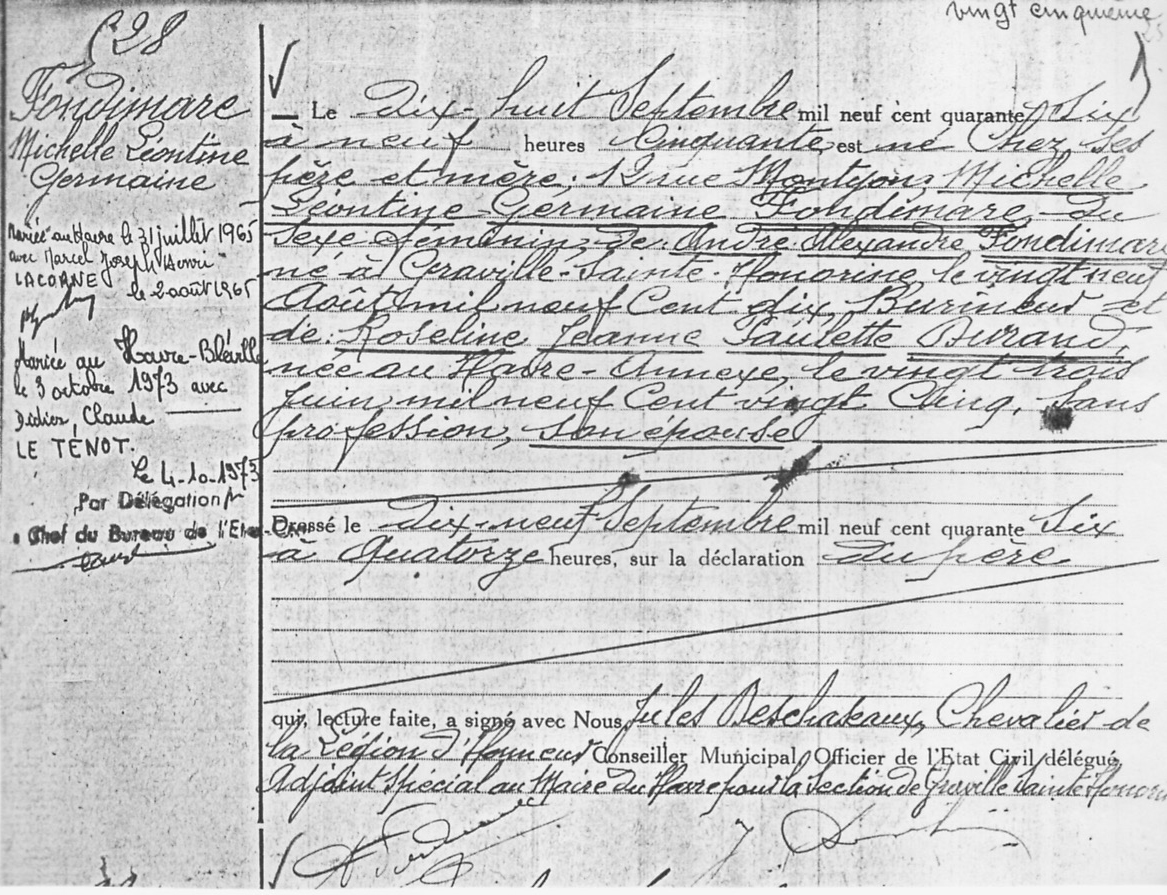 vingt cinquième
528
Fondimare
Michelle Léontine
Germaine
Mariée au Havre le 31 juillet 1965
avec Marcel Joseph Henri
LACORNE
le 2 août 1965
Mariée au Havre-Bléville
le 3 octobre 1973 avec
Didier Claude
LE TÉNOT.
Le 4-10-1973
Par Délégation
Chef du Bureau de l'Etat-
Le Dix-huit Septembre mil neuf cent quarante Six
à neuf heures Cinquante est né Chez ses
père et mère, 12 rue Montyon, Michelle
Léontine Germaine Fondimare, du
Sexe féminin, de André Alexandre Fondimare
né à Graville-Sainte-Honorine le vingt neuf
Août mil neuf Cent dix, Burineur et
de Roseline Jeanne Paulette Durand,
née au Havre-Annexe, le vingt trois
Juin mil neuf Cent vingt Cinq, Sans
profession, son épouse
Dressé le Dix-neuf Septembre mil neuf cent quarante Six
à Quatorze heures, sur la déclaration du père
qui, lecture faite, a signé avec Nous, Jules Deschaseaux, Chevalier de
la Légion d'Honneur Conseiller Municipal Officier de l'Etat Civil délégué
Adjoint Spécial au Maire du Havre pour la Section de Graville Sainte Honorine